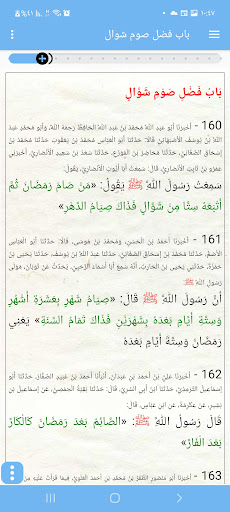 ١٠:٤٧
٪٤١
باب فضل صوم شوال
بَابُ فَضْلِ صَوْمِ شَوَّالٍ
160 - أخبرنا أبو عبد اللهِ مُحَمَّدُ بْنُ عَبْدِ اللهِ الحَافِظُ رحمهُ اللهُ، وأَبُو مُحَمَّدٍ عَبْدُ
اللهِ بْنُ يُوسُفَ الأَصْبَهَانِيُّ قَالَا: حَدَّثَنَا أَبُو العَبَّاسِ مُحَمَّدُ بْنُ يَعْقُوبَ حَدَّثَنَا مُحَمَّدُ بْنُ
إِسْحَاقَ الصَّغَانِيُّ، حَدَّثَنَا مُحَاضِرُ بْنُ المُوَرِّعِ، حَدَّثَنَا سَعْدُ بْنُ سَعِيدٍ الأَنْصَارِيُّ، أَخْبَرَنِي
عُمَرُ بْنُ ثَابِتٍ الأَنْصَارِيُّ، قال: سَمِعْتُ أَبَا أَيُّوبَ الأَنْصَارِيَّ، يَقُولُ:
سَمِعْتُ رَسُولَ اللَّهِ ﷺ يَقُولُ: «مَنْ صَامَ رَمَضَانَ ثُمَّ
أَتْبَعَهُ سِتًّا مِنْ شَوَّالٍ فَذَاكَ صِيَامُ الدَّهْرِ»
161 - أَخْبَرَنَا مُحَمَّدُ بْنُ الحُسَيْنِ، وَمُحَمَّدُ بْنُ مُوسَى، قَالَا: حَدَّثَنَا أَبُو العَبَّاسِ
الأَصَمُّ، حَدَّثَنَا مُحَمَّدُ بْنُ إِسْحَاقَ، حَدَّثَنَا عَبْدُ اللَّهِ بْنُ يُوسُفَ، حَدَّثَنَا يَحْيَى بْنُ
حَمْزَةَ، حَدَّثَنِي يَحْيَى بْنُ الحَارِثِ، أَنَّهُ سَمِعَ أَبَا أَسْمَاءَ الرَّحَبِيَّ، حَدِيثَ عَنْ ثَوْبَانَ، مَوْلَى
أَنَّ رَسُولَ اللَّهِ ﷺ قَالَ: «صِيَامُ شَهْرٍ بِعَشَرَةِ أَشْهُرٍ
وَسِتَّةِ أَيَّامٍ بَعْدَهُ بِشَهْرَيْنِ فَذَاكَ تَمَامُ السَّنَةِ» يَعْنِي
رَمَضَانَ وَسِتَّةَ أَيَّامٍ بَعْدَهُ
162 - أَخْبَرَنَا عَلِيُّ بْنُ أَحْمَدَ بْنِ عَبْدَانَ، أَنْبَأَنَا أَحْمَدُ بْنُ عُبَيْدٍ الصَّفَّارُ، حَدَّثَنَا أَبُو
إِسْمَاعِيلَ التِّرْمِذِيُّ، حَدَّثَنَا ابْنُ أَبِي السَّرِيِّ، قَالَ: حَدَّثَنَا بَقِيَّةُ، عَنْ إِسْمَاعِيلَ، عَنْ
بَشِيرٍ، عَنْ عِكْرِمَةَ، عَنِ ابْنِ عَبَّاسٍ، قَالَ:
قَالَ رَسُولُ اللَّهِ ﷺ: «الصَّائِمُ بَعْدَ رَمَضَانَ كَالْكَارِّ
بَعْدَ الْفَارِّ»
163 -